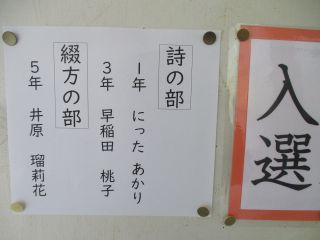 詩の部
1年 にった あかり
3年 早稲田 桃子
綴方の部
5年 井原 瑠莉花
入選